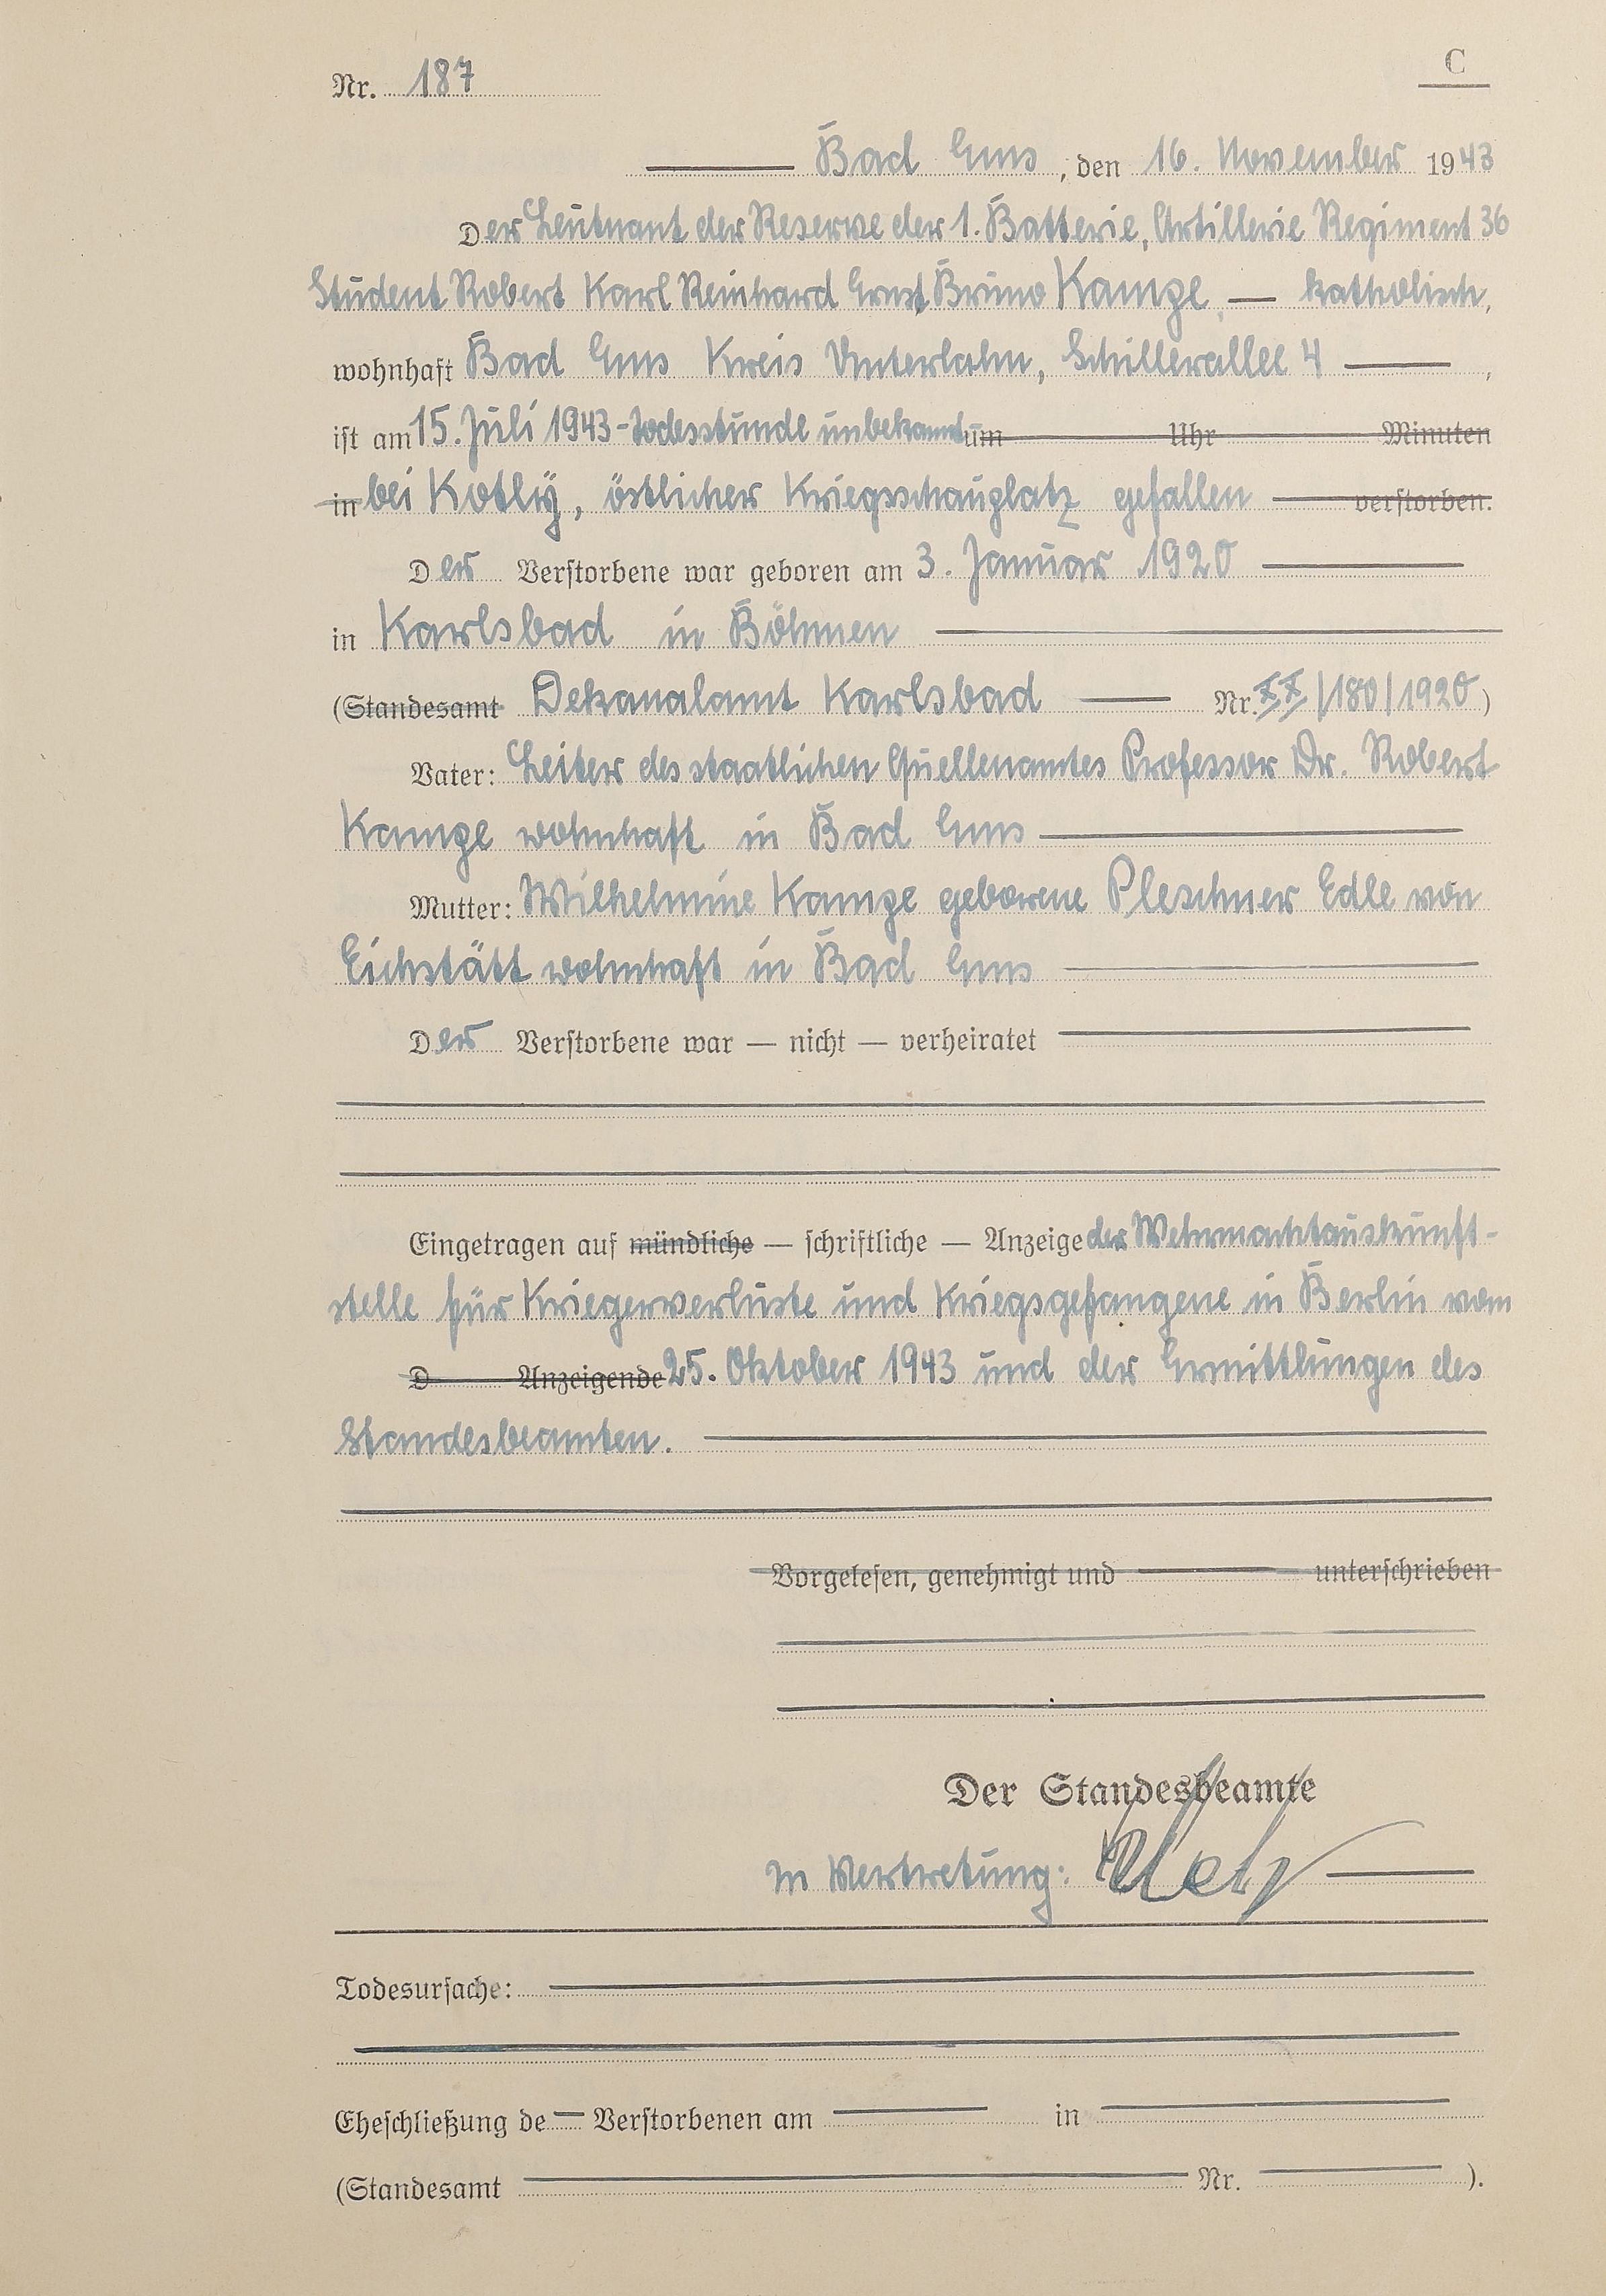 Nr. 187
C
Bad Ems, den 16. November 1943
Der Leutnant der Reserve der 1. Batterie, Artillerie Regiment 36
Student Robert Karl Reinhard Ernst Bruno Kampe, — katholisch,
wohnhaft Bad Ems Kreis Unterlahn, Schillerallee 4 ,
ist am 15. Juli 1943 - Todesstunde unbekannt um Uhr Minuten
in bei Kotlij, östlicher Kriegsschauplatz gefallen verstorben.
Der Verstorbene war geboren am 3. Januar 1920
in Karlsbad in Böhmen
(Standesamt Dekanalamt Karlsbad — Nr. XX/180/1920)
Vater: Leiter des staatlichen Quellenamtes Professor Dr. Robert
Kampe wohnhaft in Bad Ems
Mutter: Wilhelmine Kampe geborene Pleschner Edle von
Eichstätt wohnhaft in Bad Ems
Der Verstorbene war — nicht — verheiratet
Eingetragen auf mündliche — schriftliche — Anzeige der Wehrmachtauskunft-
stelle für Kriegerverluste und Kriegsgefangene in Berlin vom
D Anzeigende 25. Oktober 1943 und der Ermittlungen des
Standesbeamten.
Vorgelesen, genehmigt und unterschrieben
Der Standesbeamte
In Vertretung:
Todesursache:
Eheschließung de — Verstorbenen am in
(Standesamt Nr. ).